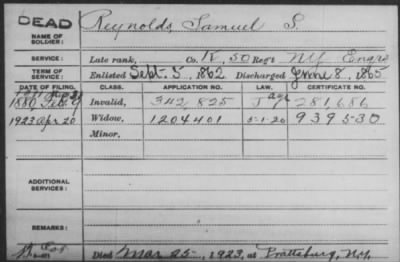 DEAD
Reynolds, Samuel S.
NAME OF SOLDIER:
SERVICE: Late rank, Co. K, 50 Reg't N.Y. Engrs
TERM OF SERVICE: Enlisted Sept. 5, 1862 Discharged June 8, 1865
DATE OF FILING. CLASS. APPLICATION NO. LAW. CERTIFICATE NO.
1880 Feb 9 Invalid, 342,825 281,686
1923 Apr 20 Widow, 1204401 5-1-20 939530
Minor.
ADDITIONAL SERVICES:
REMARKS:
Died Mar 25, 1923, at Prattsburg, N.Y.